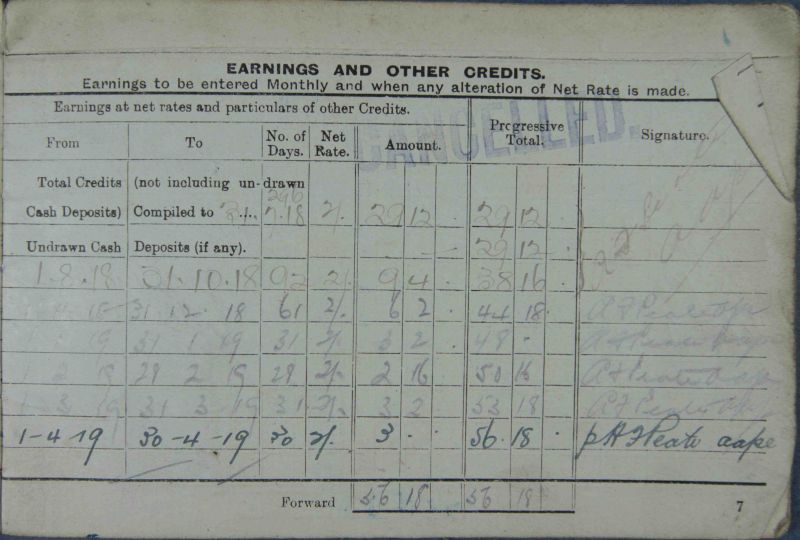 EARNINGS AND OTHER CREDITS.
Earnings to be entered Monthly and when any alteration of Net Rate is made.
Earnings at net rates and particulars of other Credits. Progressive Total. Signature.
From To No. of Days. Net Rate. Amount.
CANCELLED.
Total Credits (not including un-drawn
296
Cash Deposits) Compiled to 31. 7.18 2/. 29 12 . 29 12 .
Undrawn Cash Deposits (if any). 29 12 .
1.8.18 31.10.18 92 2/. 9 4 . 38 16 .
31 12 18 61 2/. 6 2 44 18 .
31 1 19 31 2/. 3 2 48 .
1 2 19 28 2 19 28 2/. 2 16 50 16
1 3 19 31 3 19 31 2/. 3 2 53 18
1-4-19 30-4-19 30 2/. 3 . . 56 . 18 .
Forward 56 18 56 18
7